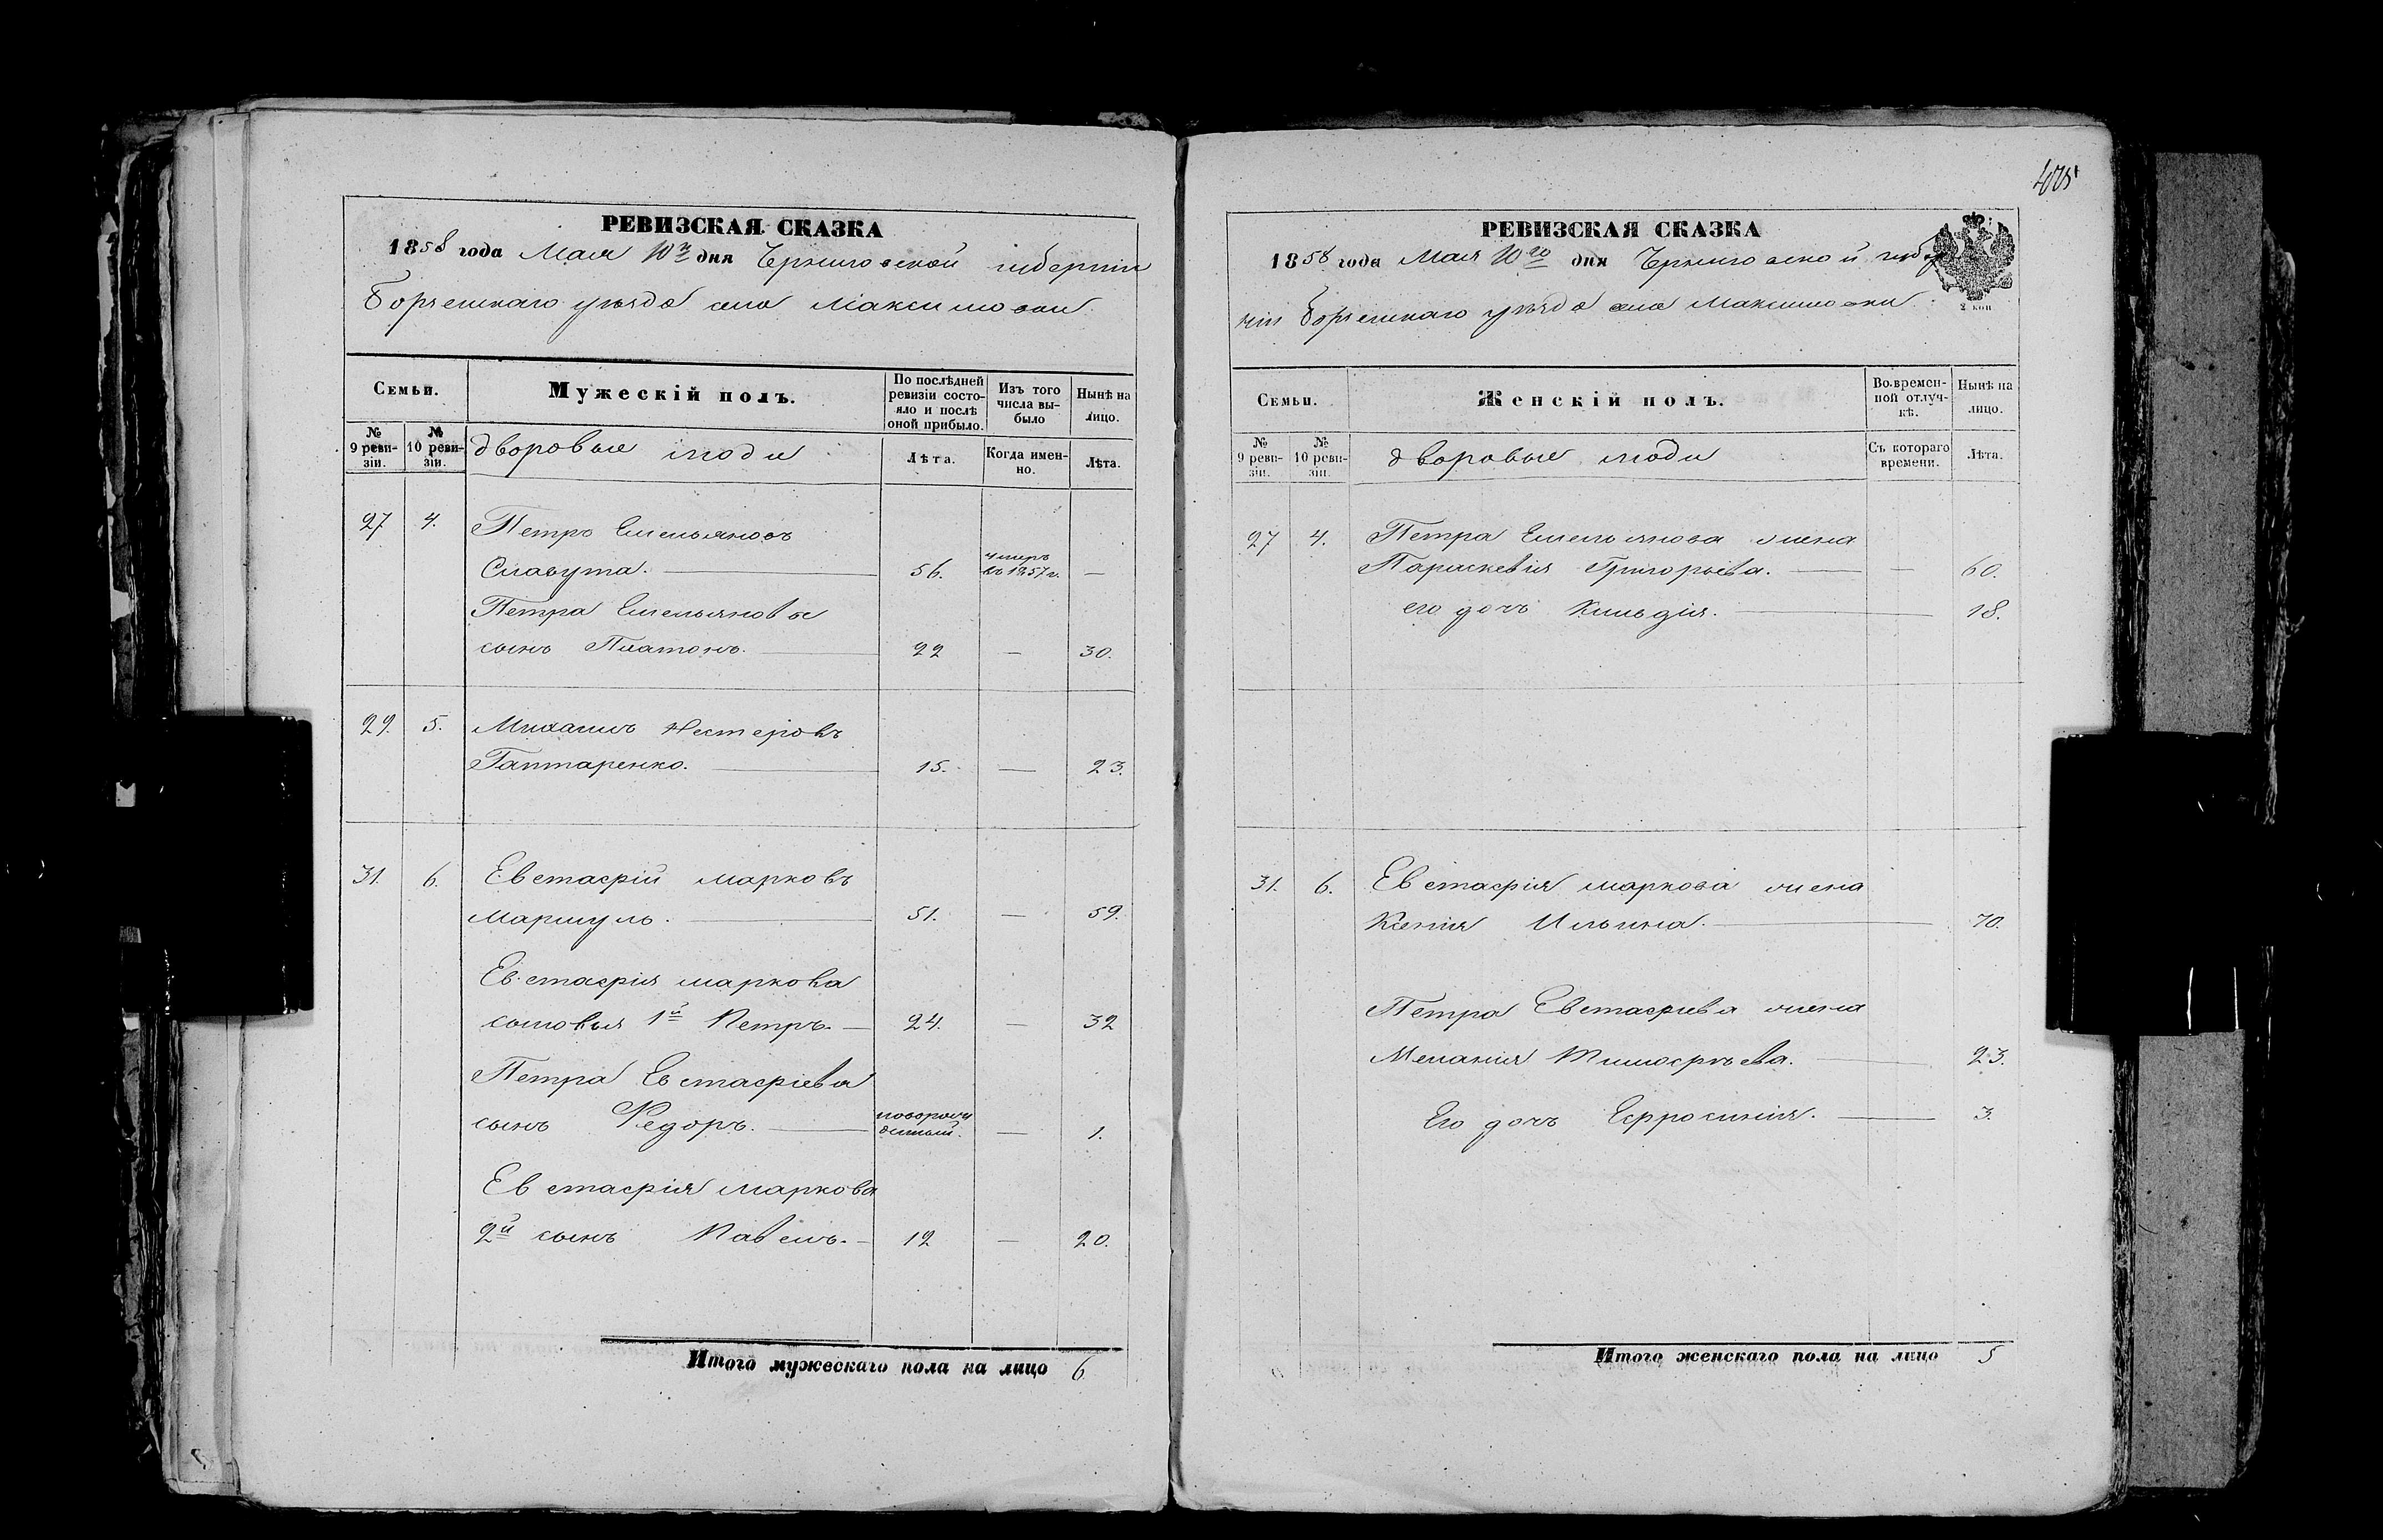 РЕВИЗСКАЯ СКАЗКА
1858 года Мая 10го дня Черниговской губерніи
Борзенскаго уѣзда села Максимовки
Семьи.
Мужескій полъ.
По послѣдней ревизіи состо-
яло и послѣ оной прибыло.
Изъ того числа вы-
было
Нынѣ на лицо.
№ 9 реви-
зіи.
№ 10 реви-
зіи.
дворовые люди
Лѣта.
Когда имен-
но.
Лѣта.
27 4. Петръ Емельяновъ
Славута. 56. умеръ въ 1857 г. —
Петра Емельянова
сынъ Платонъ. 22 — 30.
29. 5. Михаилъ Нестеровъ
Гаптаренко. 15. — 23.
31. 6. Евстафій Марковъ
Маршуль. 51. — 59.
Евстафія Маркова
сыновья 1й Петръ. 24. — 32
Петра Евстафіева
сынъ Федоръ. новорож
денный. — 1.
Евстафія Маркова
2й сынъ Павелъ. 12 — 20.
Итого мужескаго пола на лицо 6
475
РЕВИЗСКАЯ СКАЗКА
1858 года Мая 10го дня Черниговской губер
ніи Борзенскаго уѣзда села Максимовки
2 коп
Семьи.
Женскій полъ.
Во времен-
ной отлуч-
кѣ.
Нынѣ на лицо.
№ 9 реви-
зіи.
№ 10 реви-
зіи.
дворовые люди
Съ котораго времени.
Лѣта.
27 4. Петра Емельянова жена
Параскевія Григорьева. — 60.
его дочь Килидія. 18.
31. 6. Евстафія Маркова жена
Ксенія Ильина. 70.
Петра Евстафіева жена
Меланія Тимофѣева. 23.
Его дочь Ефросинія. 3.
Итого женскаго пола на лицо 5